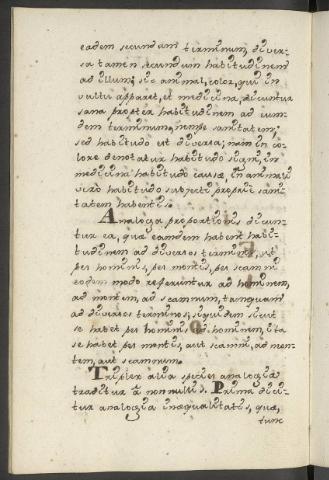 eadem secundum terminum, diver-
sa tamen secundum habitudinem
ad illum; sic animal, color, qui in
vultu apparet, et medicina, dicuntur
sana propter habitudinem ad eun-
dem terminum, nempe sanitatem;
sed habitudo est diversa; nam in co-
lore denotatur habitudo signi, in
medicina habitudo causæ, in animali
vero habitudo subjecti proprii sani-
tatem habentis.
Analoga proportionis dicun-
tur ea, quæ eamdem habent habi-
tudinem ad diversos terminos, ut
pes hominis, pes montis, pes scamni
eodem modo referuntur ad hominem,
ad montem, ad scamnum, tanquam
ad diversos terminos; siquidem sicut
se habet pes hominis ad hominem, ita
se habet pes montis, aut scamni, ad mon-
tem, aut scamnum.
Triplex alia species analogiæ
traditur a non nullis. Prima dici-
tur analogia inæqualitatis, quæ,
tunc